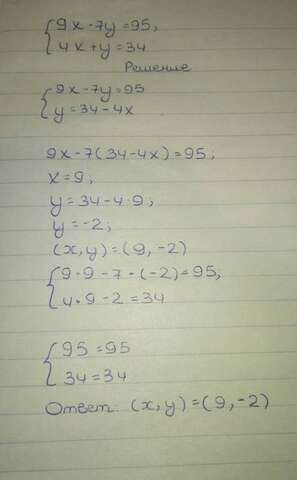 {9x-7y=95,
{4x+y=34
Решение
{9x-7y=95
{y=34-4x
9x-7(34-4x)=95;
x=9;
y=34-4·9;
y=-2;
(x,y)=(9,-2)
{9·9-7·(-2)=95;
{4·9-2=34
{95=95
{34=34
Ответ: (x,y)=(9,-2)